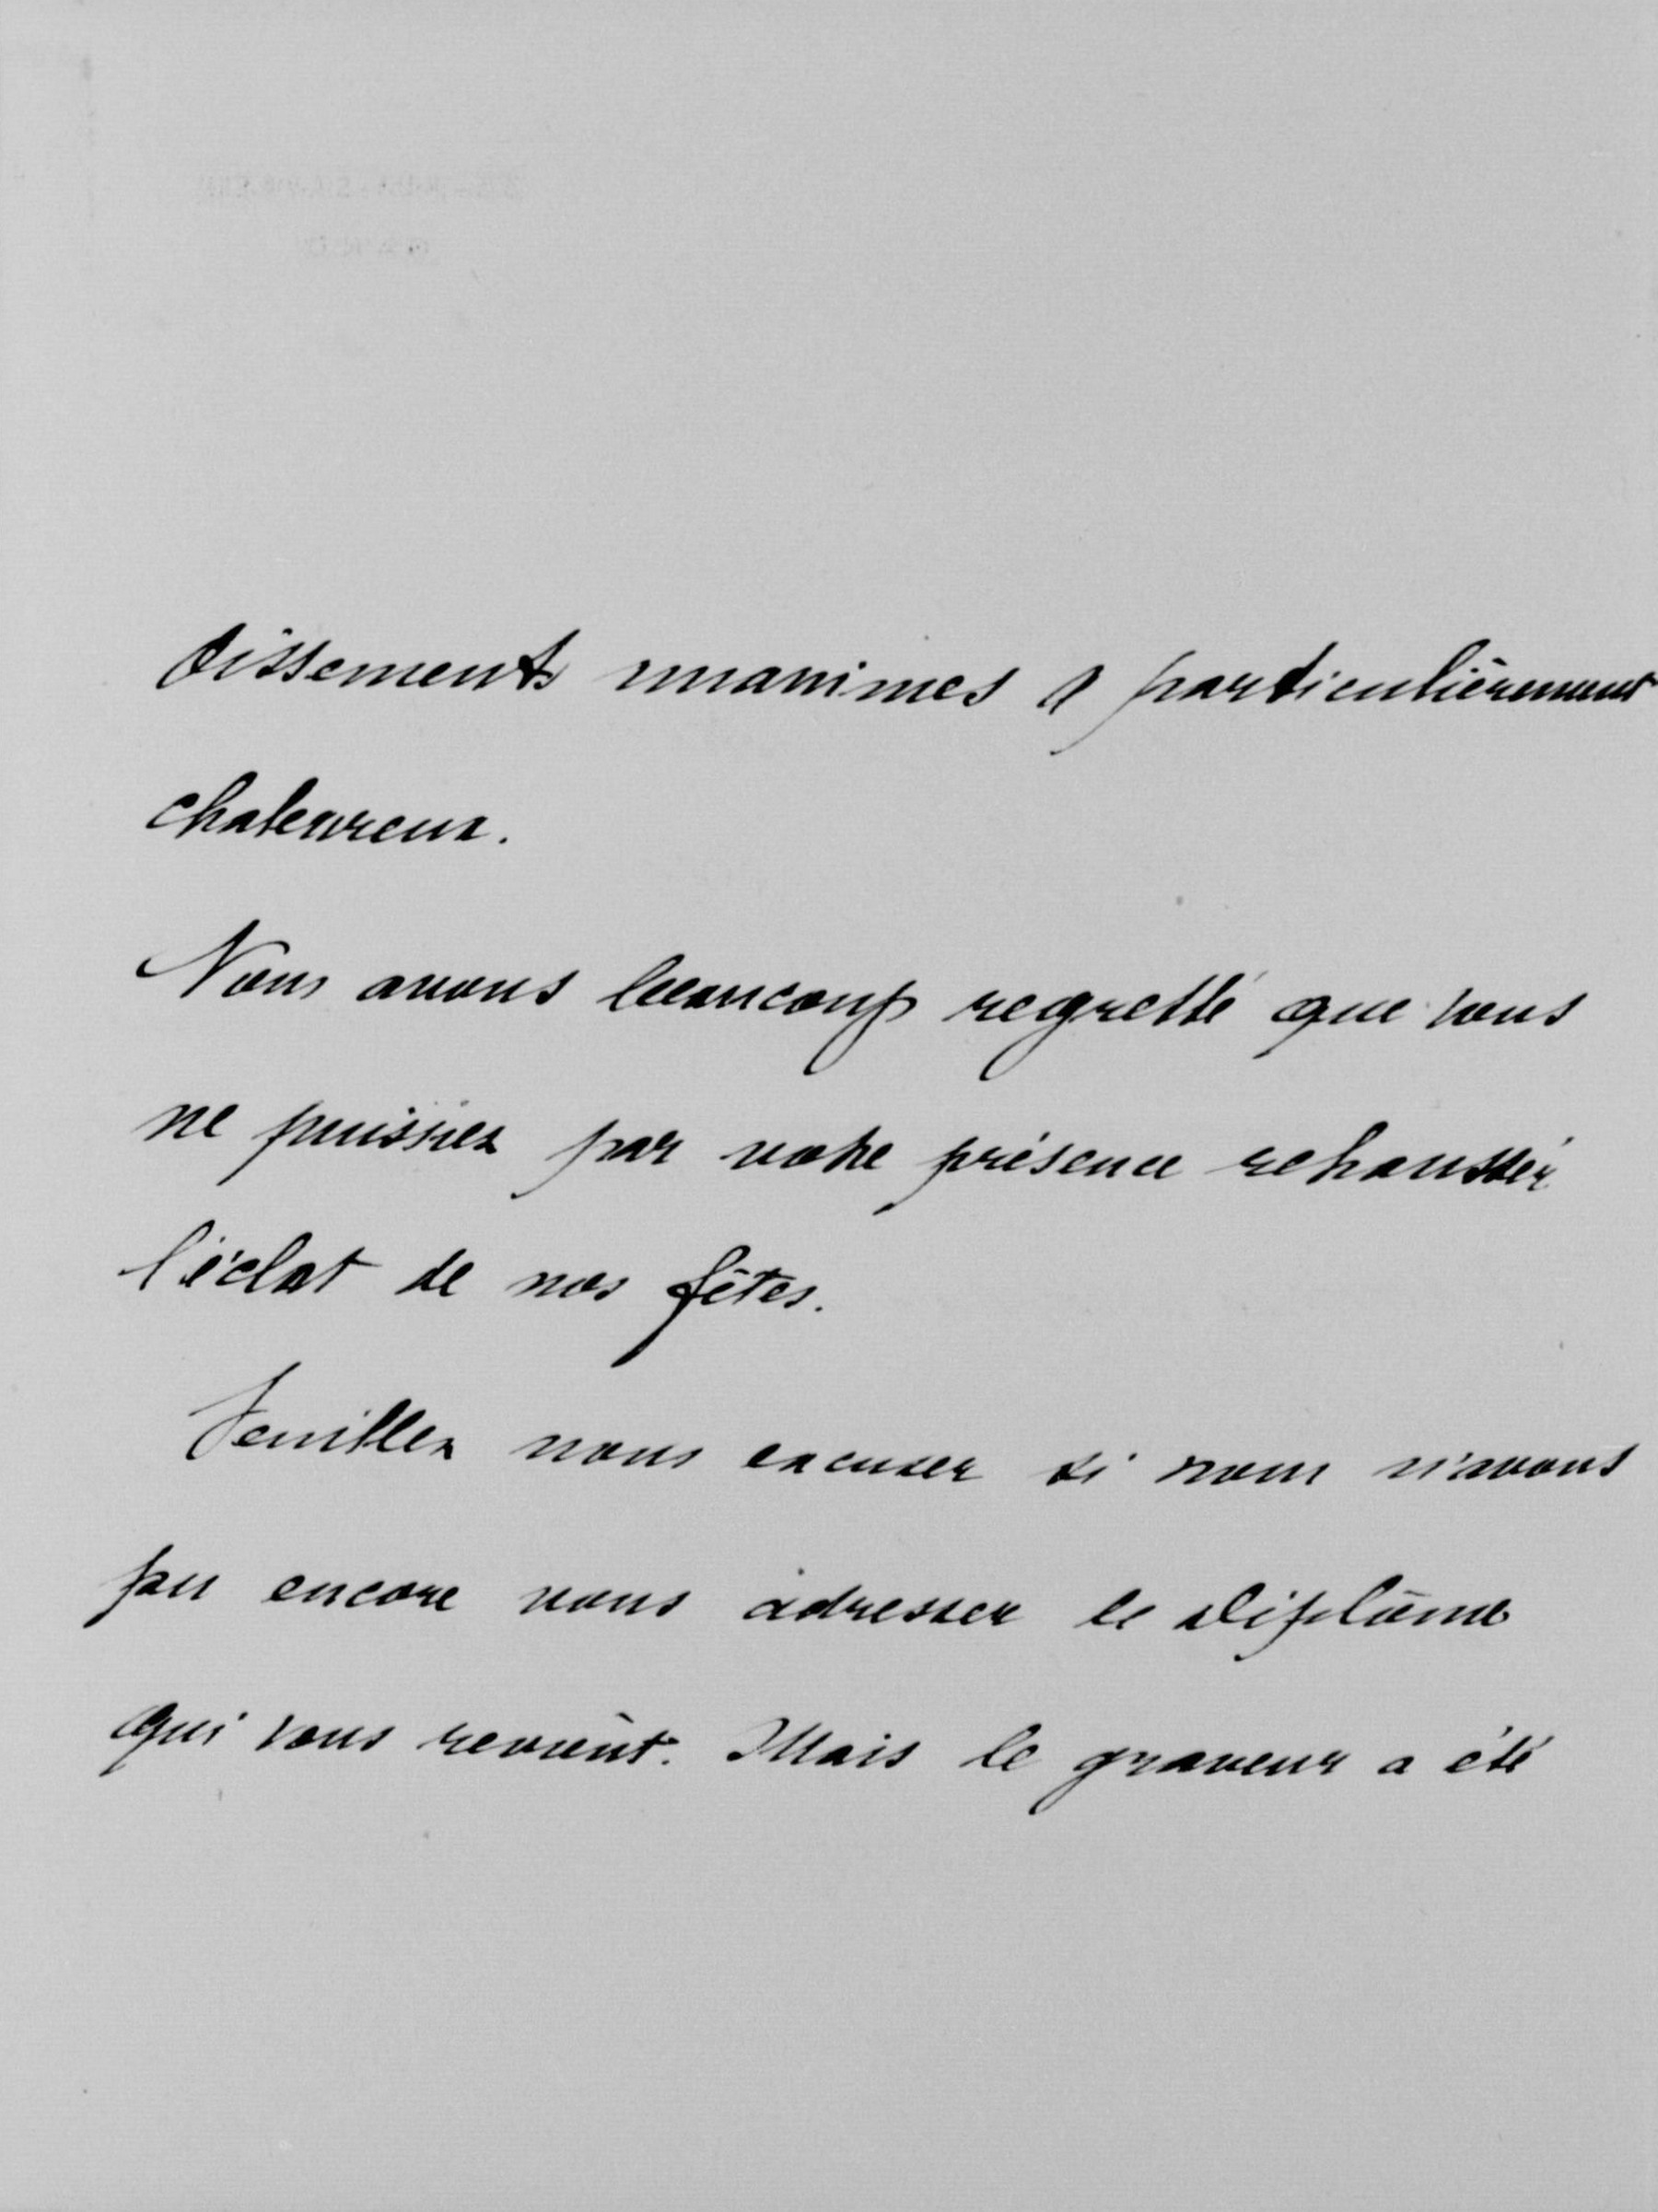 dissements unanimes & particulièrement
chaleureux.
Nous avons beaucoup regretté que vous
ne puissiez par votre présence rehausser
l'éclat de nos fêtes.
Veuillez nous excuser si nous n'avons
pu encore vous adresser le diplôme
qui vous revient. Mais le graveur a été